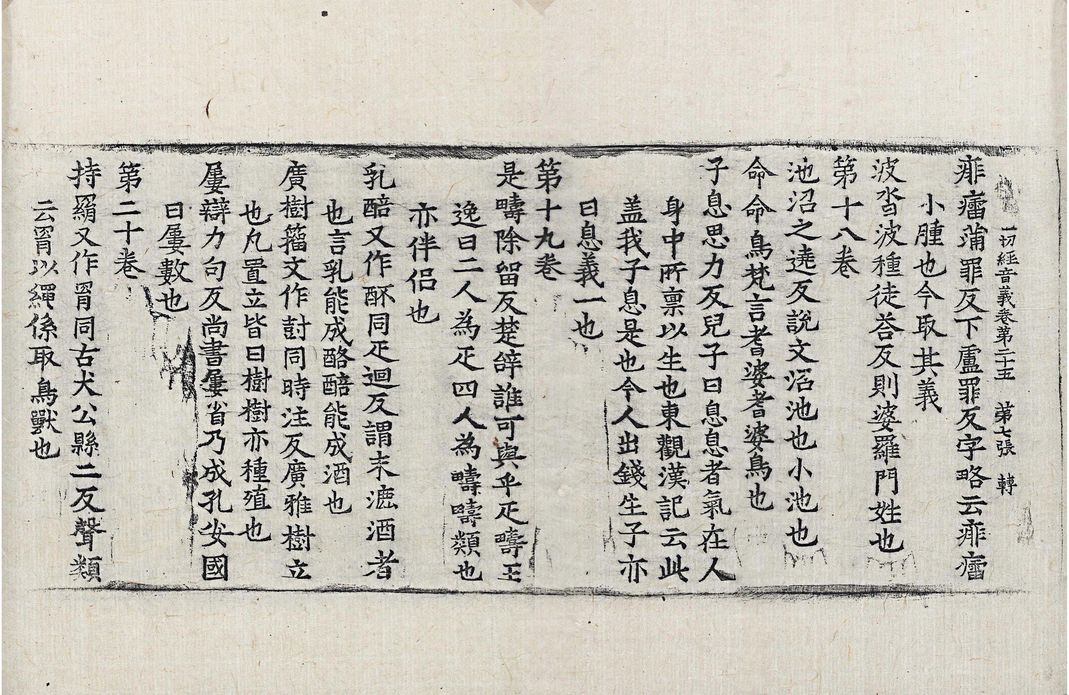 一切經音義卷第二十五 第七張 轉
痱𤺄蒲罪反下盧罪反字略云痱𤺄
小腫也今取其義
波沓波種徒荅反則婆羅門姓也
第十八卷
池沼之遶反說文沼池也小池也
命命鳥梵言耆婆耆婆鳥也
子息思力反兒子曰息息者氣在人
身中所稟以生也東觀漢記云此
盖我子息是也今人出錢生子亦
曰息義一也
第十九卷
是疇除留反楚辞誰可與乎疋疇王
逸曰二人為疋四人為疇疇類也
亦伴侣也
乳醅又作䣱同疋迴反謂未漉酒者
也言乳能成酪醅能成酒也
廣樹籕文作尌同時注反廣雅樹立
也凡置立皆曰樹樹亦種殖也
屢辯力句反尚書屢省乃成孔安國
曰屢數也
第二十卷
持羂又作罥同古犬公縣二反聲類
云罥以繩係取鳥獸也